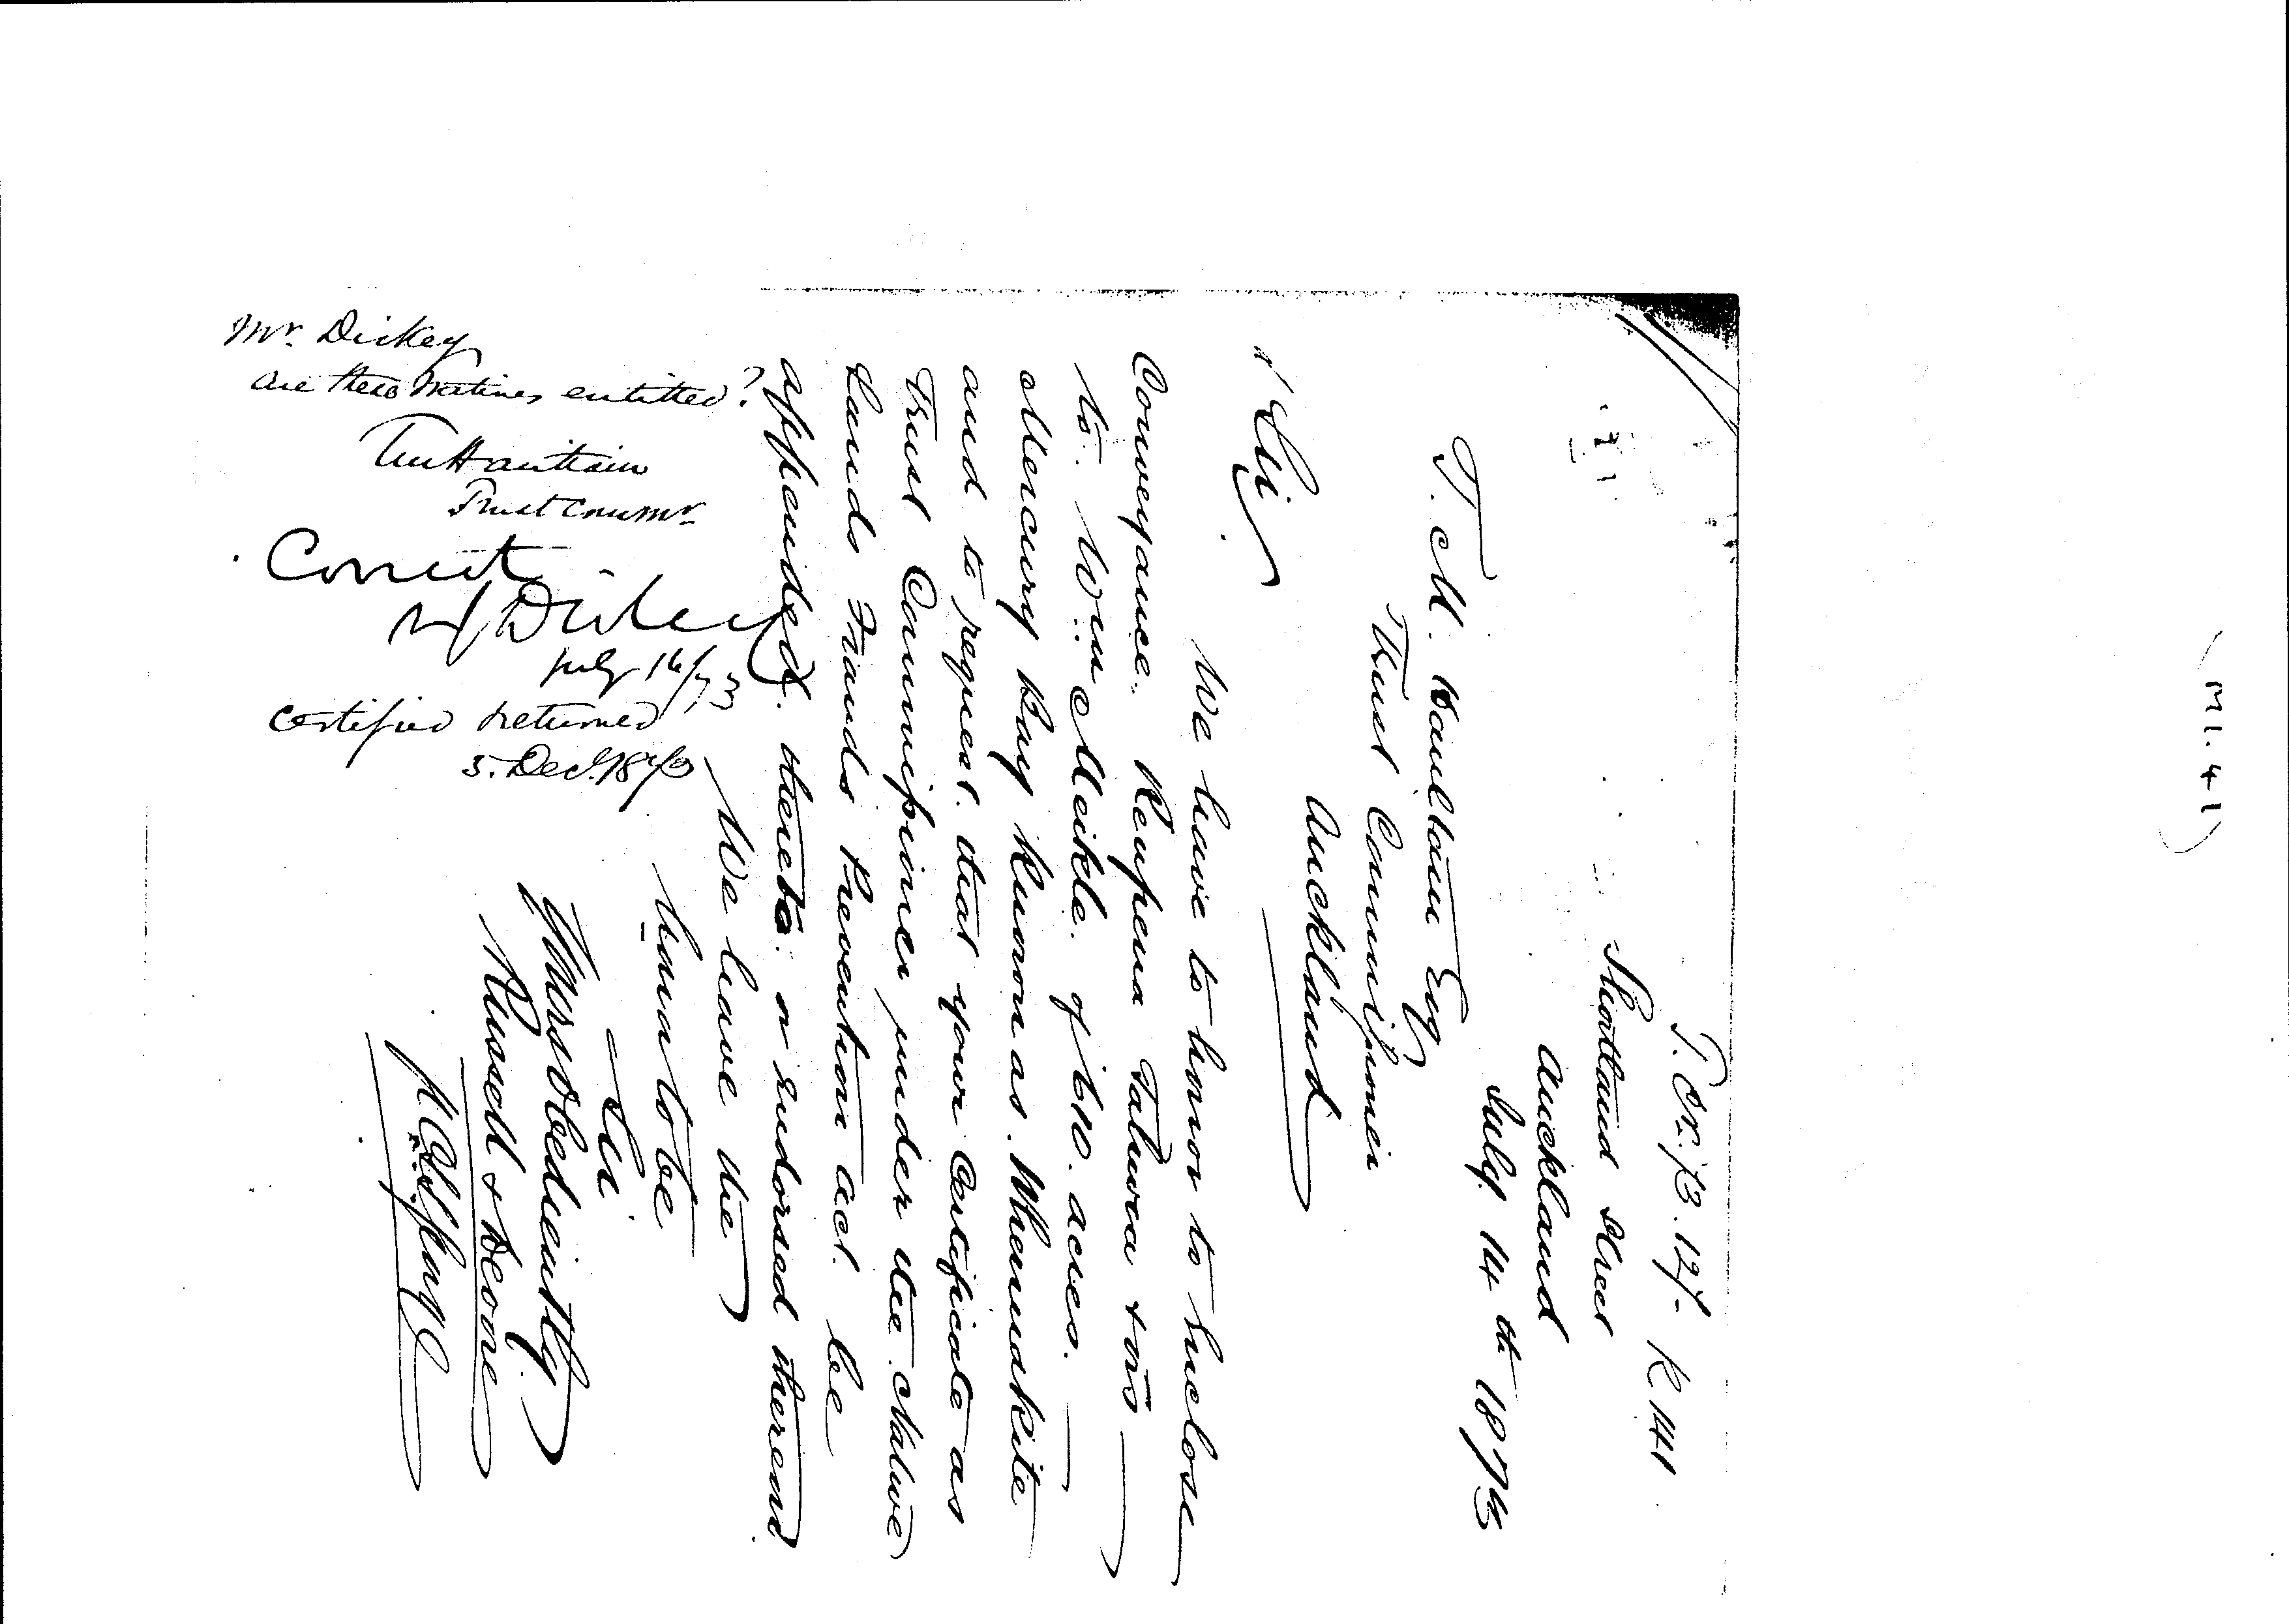 (M1.41)
T. Or. 73.127. R 141
Shortland Street
Auckland
July 14th 1873
T. M. Haultain Esq
Trust Commissioner
Auckland
Sir
We have to honor to Inclose
Conveyance. Reupena Tahwa + ors
to Wm Meikle. of 610. acres.
Mercury Bay Known as. Whenuakite
and to request. that your Certificate as
Trust Commissioner under the Native
Lands Frauds Prevention act. be
appended. thereto. or endorsed thereon
We have the
honor to be
Sir.
Yours Obediently.
Russell & Devore
Mr. Dickey
Are these Natives entitled?
TM Haultain
Trust Commr.
Correct
Dickey
July 16/73
Certified & returned
5. Dec. 1873